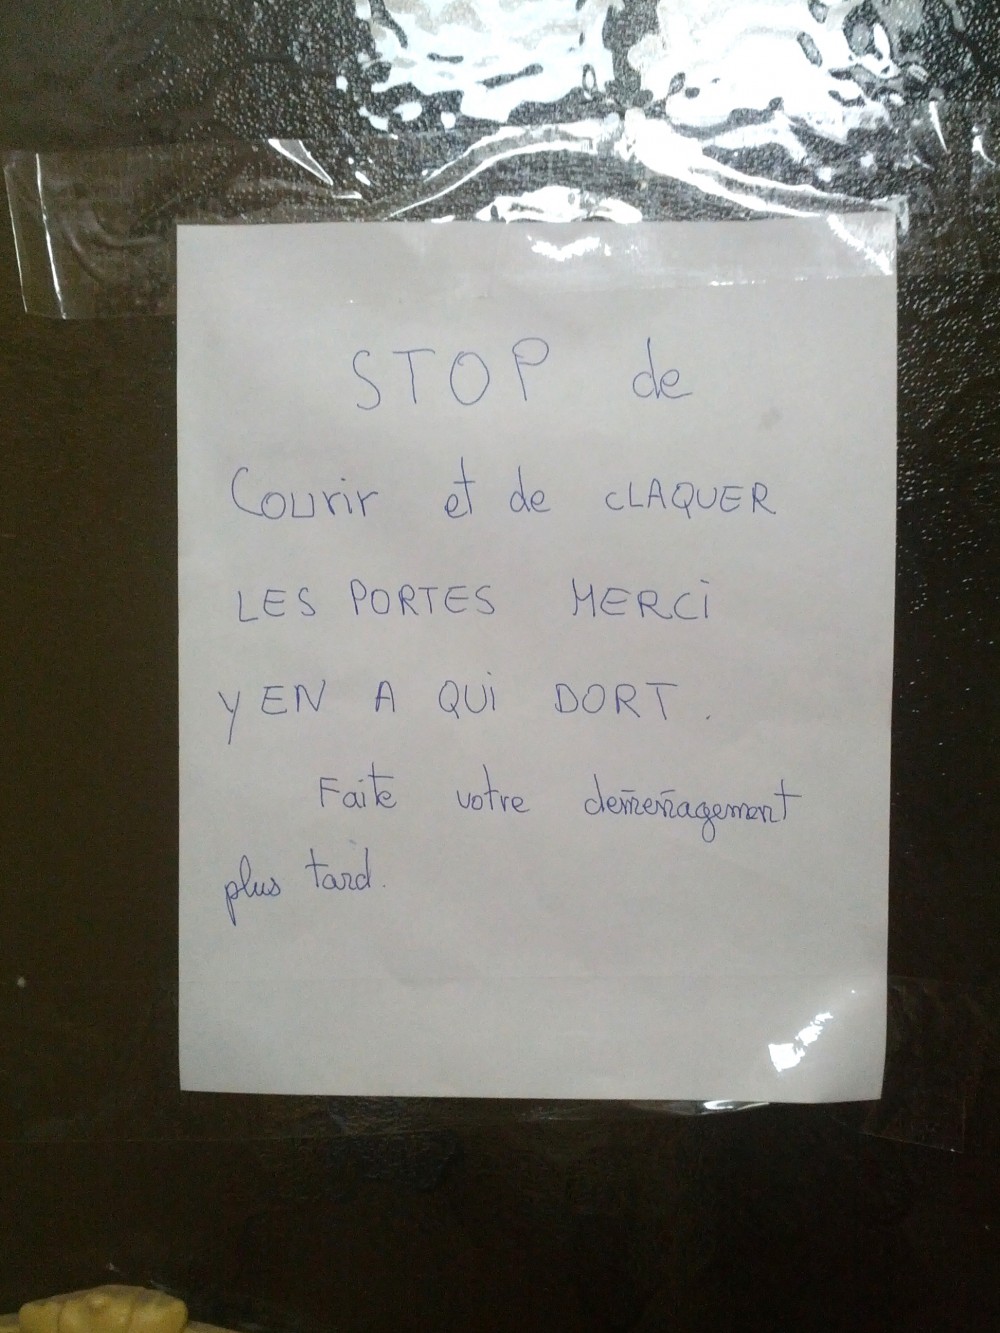 STOP de
Courir et de CLAQUER
LES PORTES MERCi
Y EN A QUi DORT.
Faite votre demenagement
plus tard.